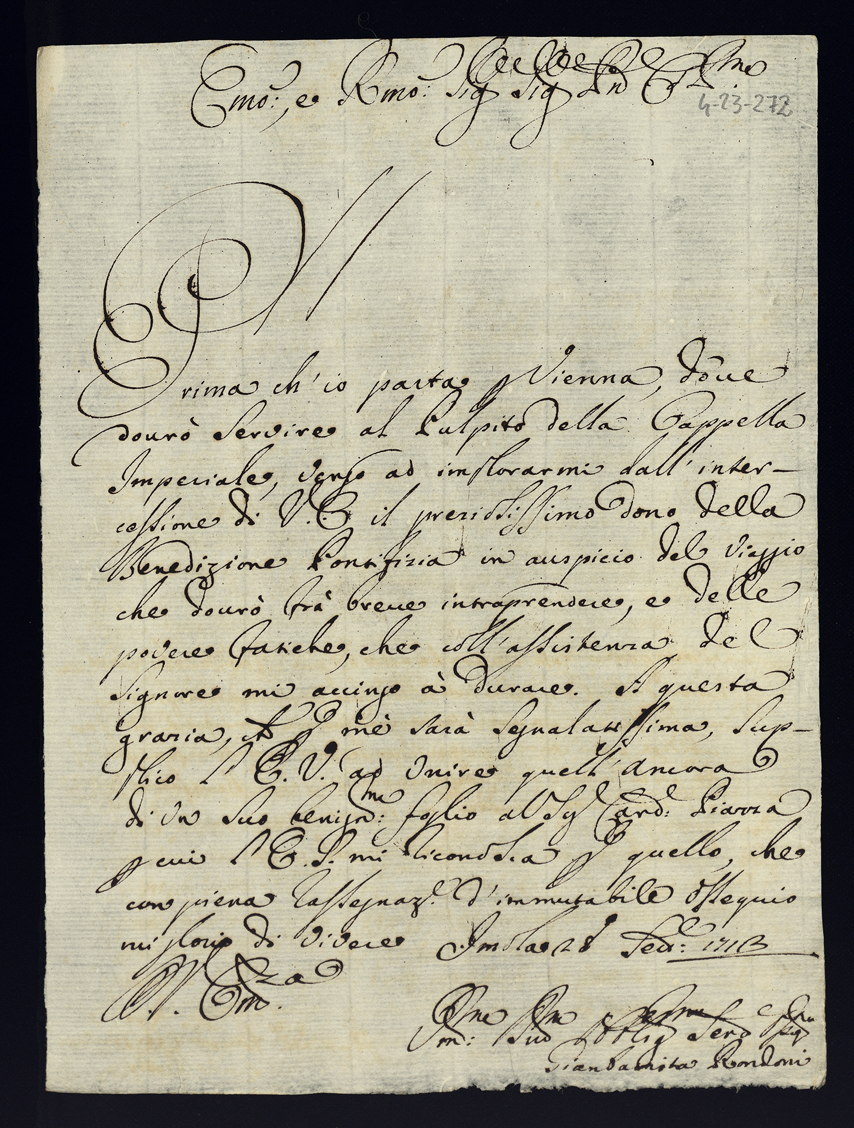 Emo:, e Rmo: Sig Sig
4-23-272
Prima ch'io parta p Vienna, doue
dourò Servire al Pulpito della Cappella
Imperiale, vengo ad implorarmi dall'inter-
cessione di V.E. il preziosissimo dono della
Benedizione Pontifizia in auspicio del Viaggio
che dourò frà breue intraprendere, e delle
povere fatiche, che coll'assistenza del
Signore mi accingo à durare. A questa
grazia, ch p mè sarà Segnalatissima, sup-
plico l'E.V. ad Unire quell'ancora
di un suo benignmo: foglio al Sigr Cardl: Piazza
p cui l'E.S. mi riconosca p quello, che
con piena rassegnaze. d'immutabile ossequio
mi glorio di vivere Imola 28 1713
V. Emza
Giambattista Rondoni